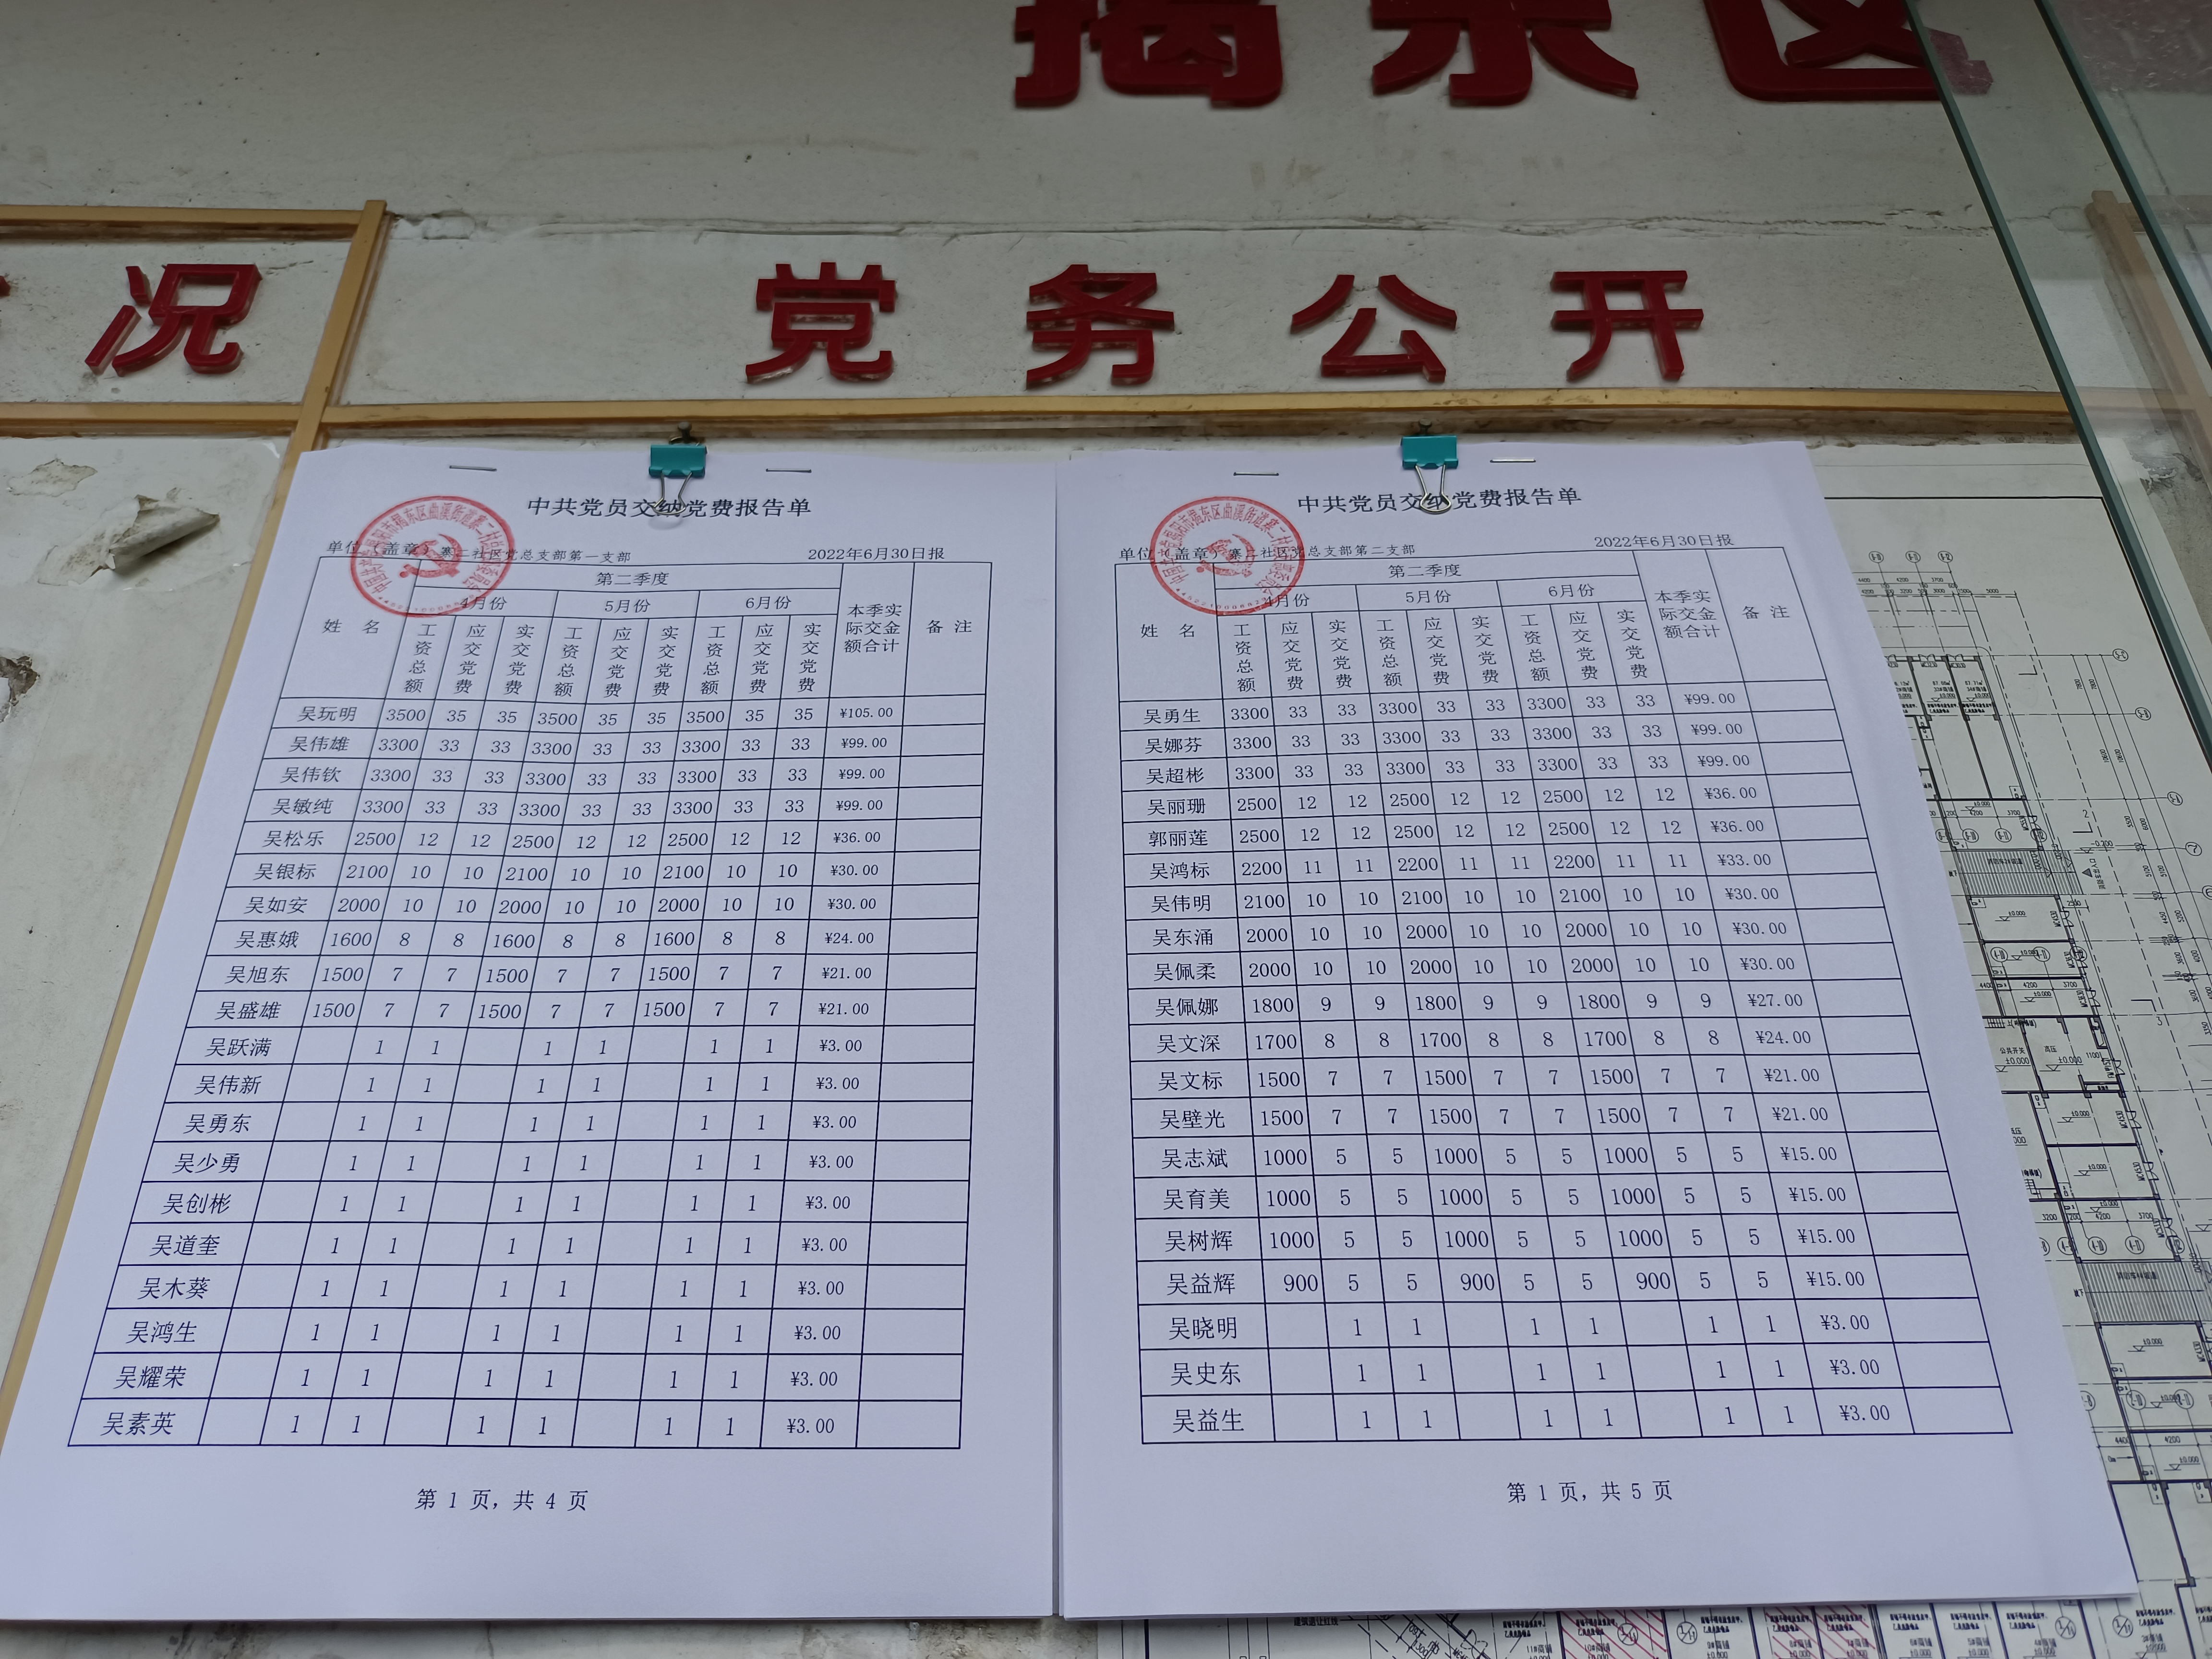 揭东区
况
党务公开
中共党员交纳党费报告单
单位（盖章） 寨二社区党总支部第一支部 2022年6月30日报
姓 名 第二季度 本季实际交金额合计 备 注
4月份 5月份 6月份
工资总额 应交党费 实交党费 工资总额 应交党费 实交党费 工资总额 应交党费 实交党费
吴玩明 3500 35 35 3500 35 35 3500 35 35 ¥105.00
吴伟雄 3300 33 33 3300 33 33 3300 33 33 ¥99.00
吴伟钦 3300 33 33 3300 33 33 3300 33 33 ¥99.00
吴敏纯 3300 33 33 3300 33 33 3300 33 33 ¥99.00
吴松乐 2500 12 12 2500 12 12 2500 12 12 ¥36.00
吴银标 2100 10 10 2100 10 10 2100 10 10 ¥30.00
吴如安 2000 10 10 2000 10 10 2000 10 10 ¥30.00
吴惠娥 1600 8 8 1600 8 8 1600 8 8 ¥24.00
吴旭东 1500 7 7 1500 7 7 1500 7 7 ¥21.00
吴盛雄 1500 7 7 1500 7 7 1500 7 7 ¥21.00
吴跃满 1 1 1 1 1 1 ¥3.00
吴伟新 1 1 1 1 1 1 ¥3.00
吴勇东 1 1 1 1 1 1 ¥3.00
吴少勇 1 1 1 1 1 1 ¥3.00
吴创彬 1 1 1 1 1 1 ¥3.00
吴道奎 1 1 1 1 1 1 ¥3.00
吴木葵 1 1 1 1 1 1 ¥3.00
吴鸿生 1 1 1 1 1 1 ¥3.00
吴耀荣 1 1 1 1 1 1 ¥3.00
吴素英 1 1 1 1 1 1 ¥3.00
第 1 页，共 4 页
中共党员交纳党费报告单
单位（盖章） 寨二社区党总支部第二支部 2022年6月30日报
姓 名 第二季度 本季实际交金额合计 备 注
4月份 5月份 6月份
工资总额 应交党费 实交党费 工资总额 应交党费 实交党费 工资总额 应交党费 实交党费
吴勇生 3300 33 33 3300 33 33 3300 33 33 ¥99.00
吴娜芬 3300 33 33 3300 33 33 3300 33 33 ¥99.00
吴超彬 3300 33 33 3300 33 33 3300 33 33 ¥99.00
吴丽珊 2500 12 12 2500 12 12 2500 12 12 ¥36.00
郭丽莲 2500 12 12 2500 12 12 2500 12 12 ¥36.00
吴鸿标 2200 11 11 2200 11 11 2200 11 11 ¥33.00
吴伟明 2100 10 10 2100 10 10 2100 10 10 ¥30.00
吴东涌 2000 10 10 2000 10 10 2000 10 10 ¥30.00
吴佩柔 2000 10 10 2000 10 10 2000 10 10 ¥30.00
吴佩娜 1800 9 9 1800 9 9 1800 9 9 ¥27.00
吴文深 1700 8 8 1700 8 8 1700 8 8 ¥24.00
吴文标 1500 7 7 1500 7 7 1500 7 7 ¥21.00
吴壁光 1500 7 7 1500 7 7 1500 7 7 ¥21.00
吴志斌 1000 5 5 1000 5 5 1000 5 5 ¥15.00
吴育美 1000 5 5 1000 5 5 1000 5 5 ¥15.00
吴树辉 1000 5 5 1000 5 5 1000 5 5 ¥15.00
吴益辉 900 5 5 900 5 5 900 5 5 ¥15.00
吴晓明 1 1 1 1 1 1 ¥3.00
吴史东 1 1 1 1 1 1 ¥3.00
吴益生 1 1 1 1 1 1 ¥3.00
第 1 页，共 5 页